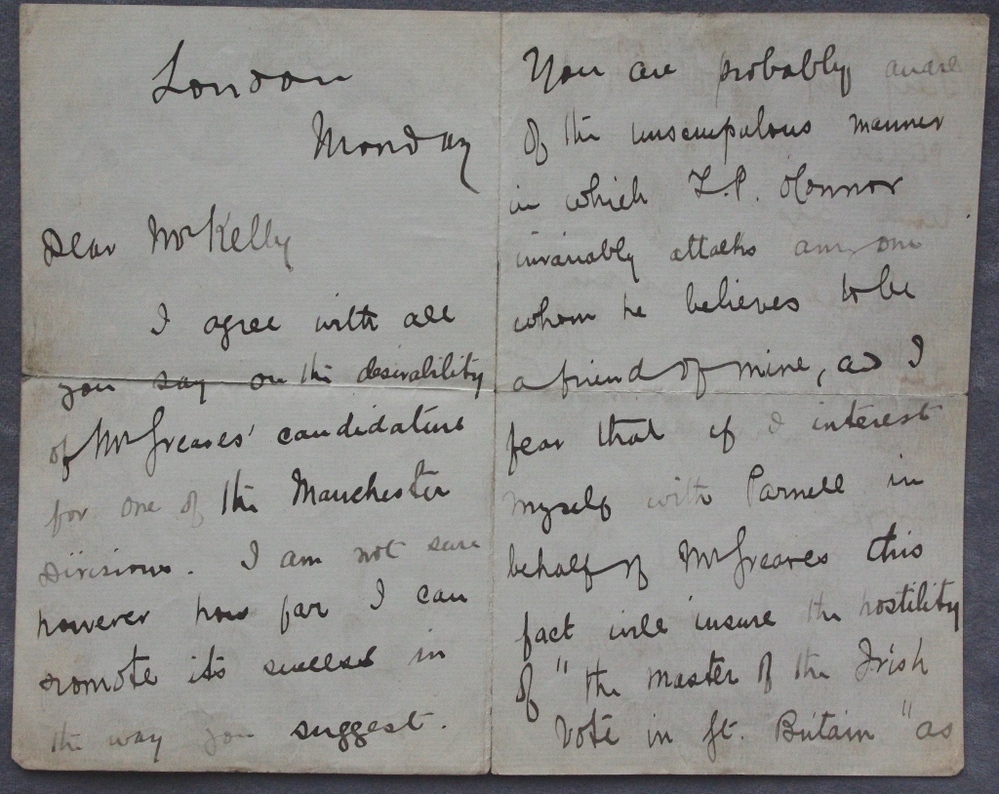 London
Monday
Dear Mr Kelly
I agree with all
you say on the desirability
of Mr Greaves' candidature
for one of the Manchester
Divisions. I am not sure
however how far I can
promote its success in
the way you suggest.
You are probably aware
of the unscrupulous manner
in which T.P. O'Connor
invariably attacks any one
whom he believes to be
a friend of mine, and I
fear that if I interest
myself with Parnell in
behalf of Mr Greaves this
fact will insure the hostility
of "the master of the Irish
Vote in Gt. Britain" as